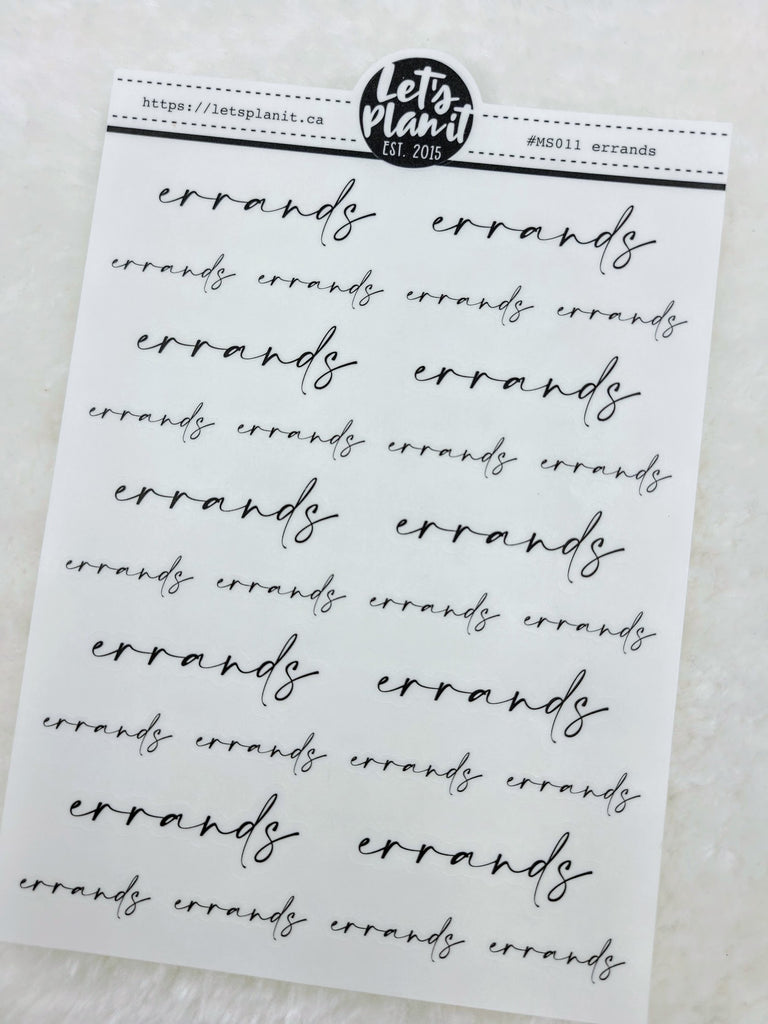 https://letsplanit.ca
Let's
Plan it
EST. 2015
#MS011 errands
errands errands
errands errands errands errands
errands errands
errands errands errands errands
errands errands
errands errands errands errands
errands errands
errands errands errands errands
errands errands
errands errands errands errands